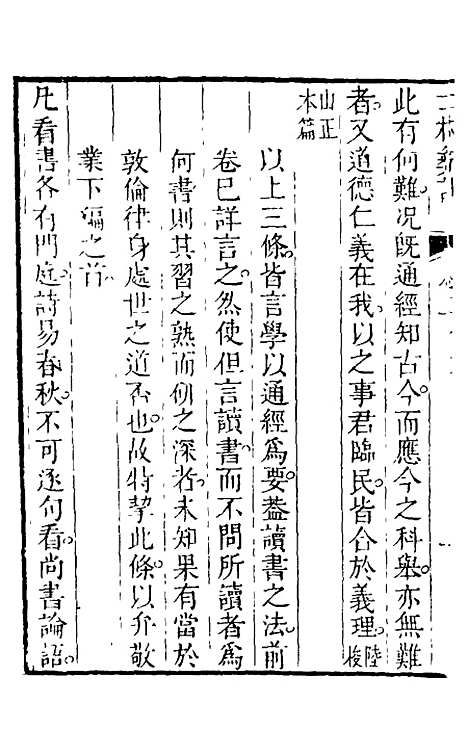 此有何難况既通經知古今而應今之科舉亦無難
者又道德仁義在我以之事君臨民皆合於義理陸梭
山正本篇
以上三條皆言學以通經爲要葢讀書之法前
卷已詳言之然使但言讀書而不問所讀者爲
何書則其習之熟而例之深者未知果有當於
敦倫律身處世之道否也故特挈此條以弁敬
業下編之首
凡看書各有門庭詩易春秋不可逐句看尚書論語